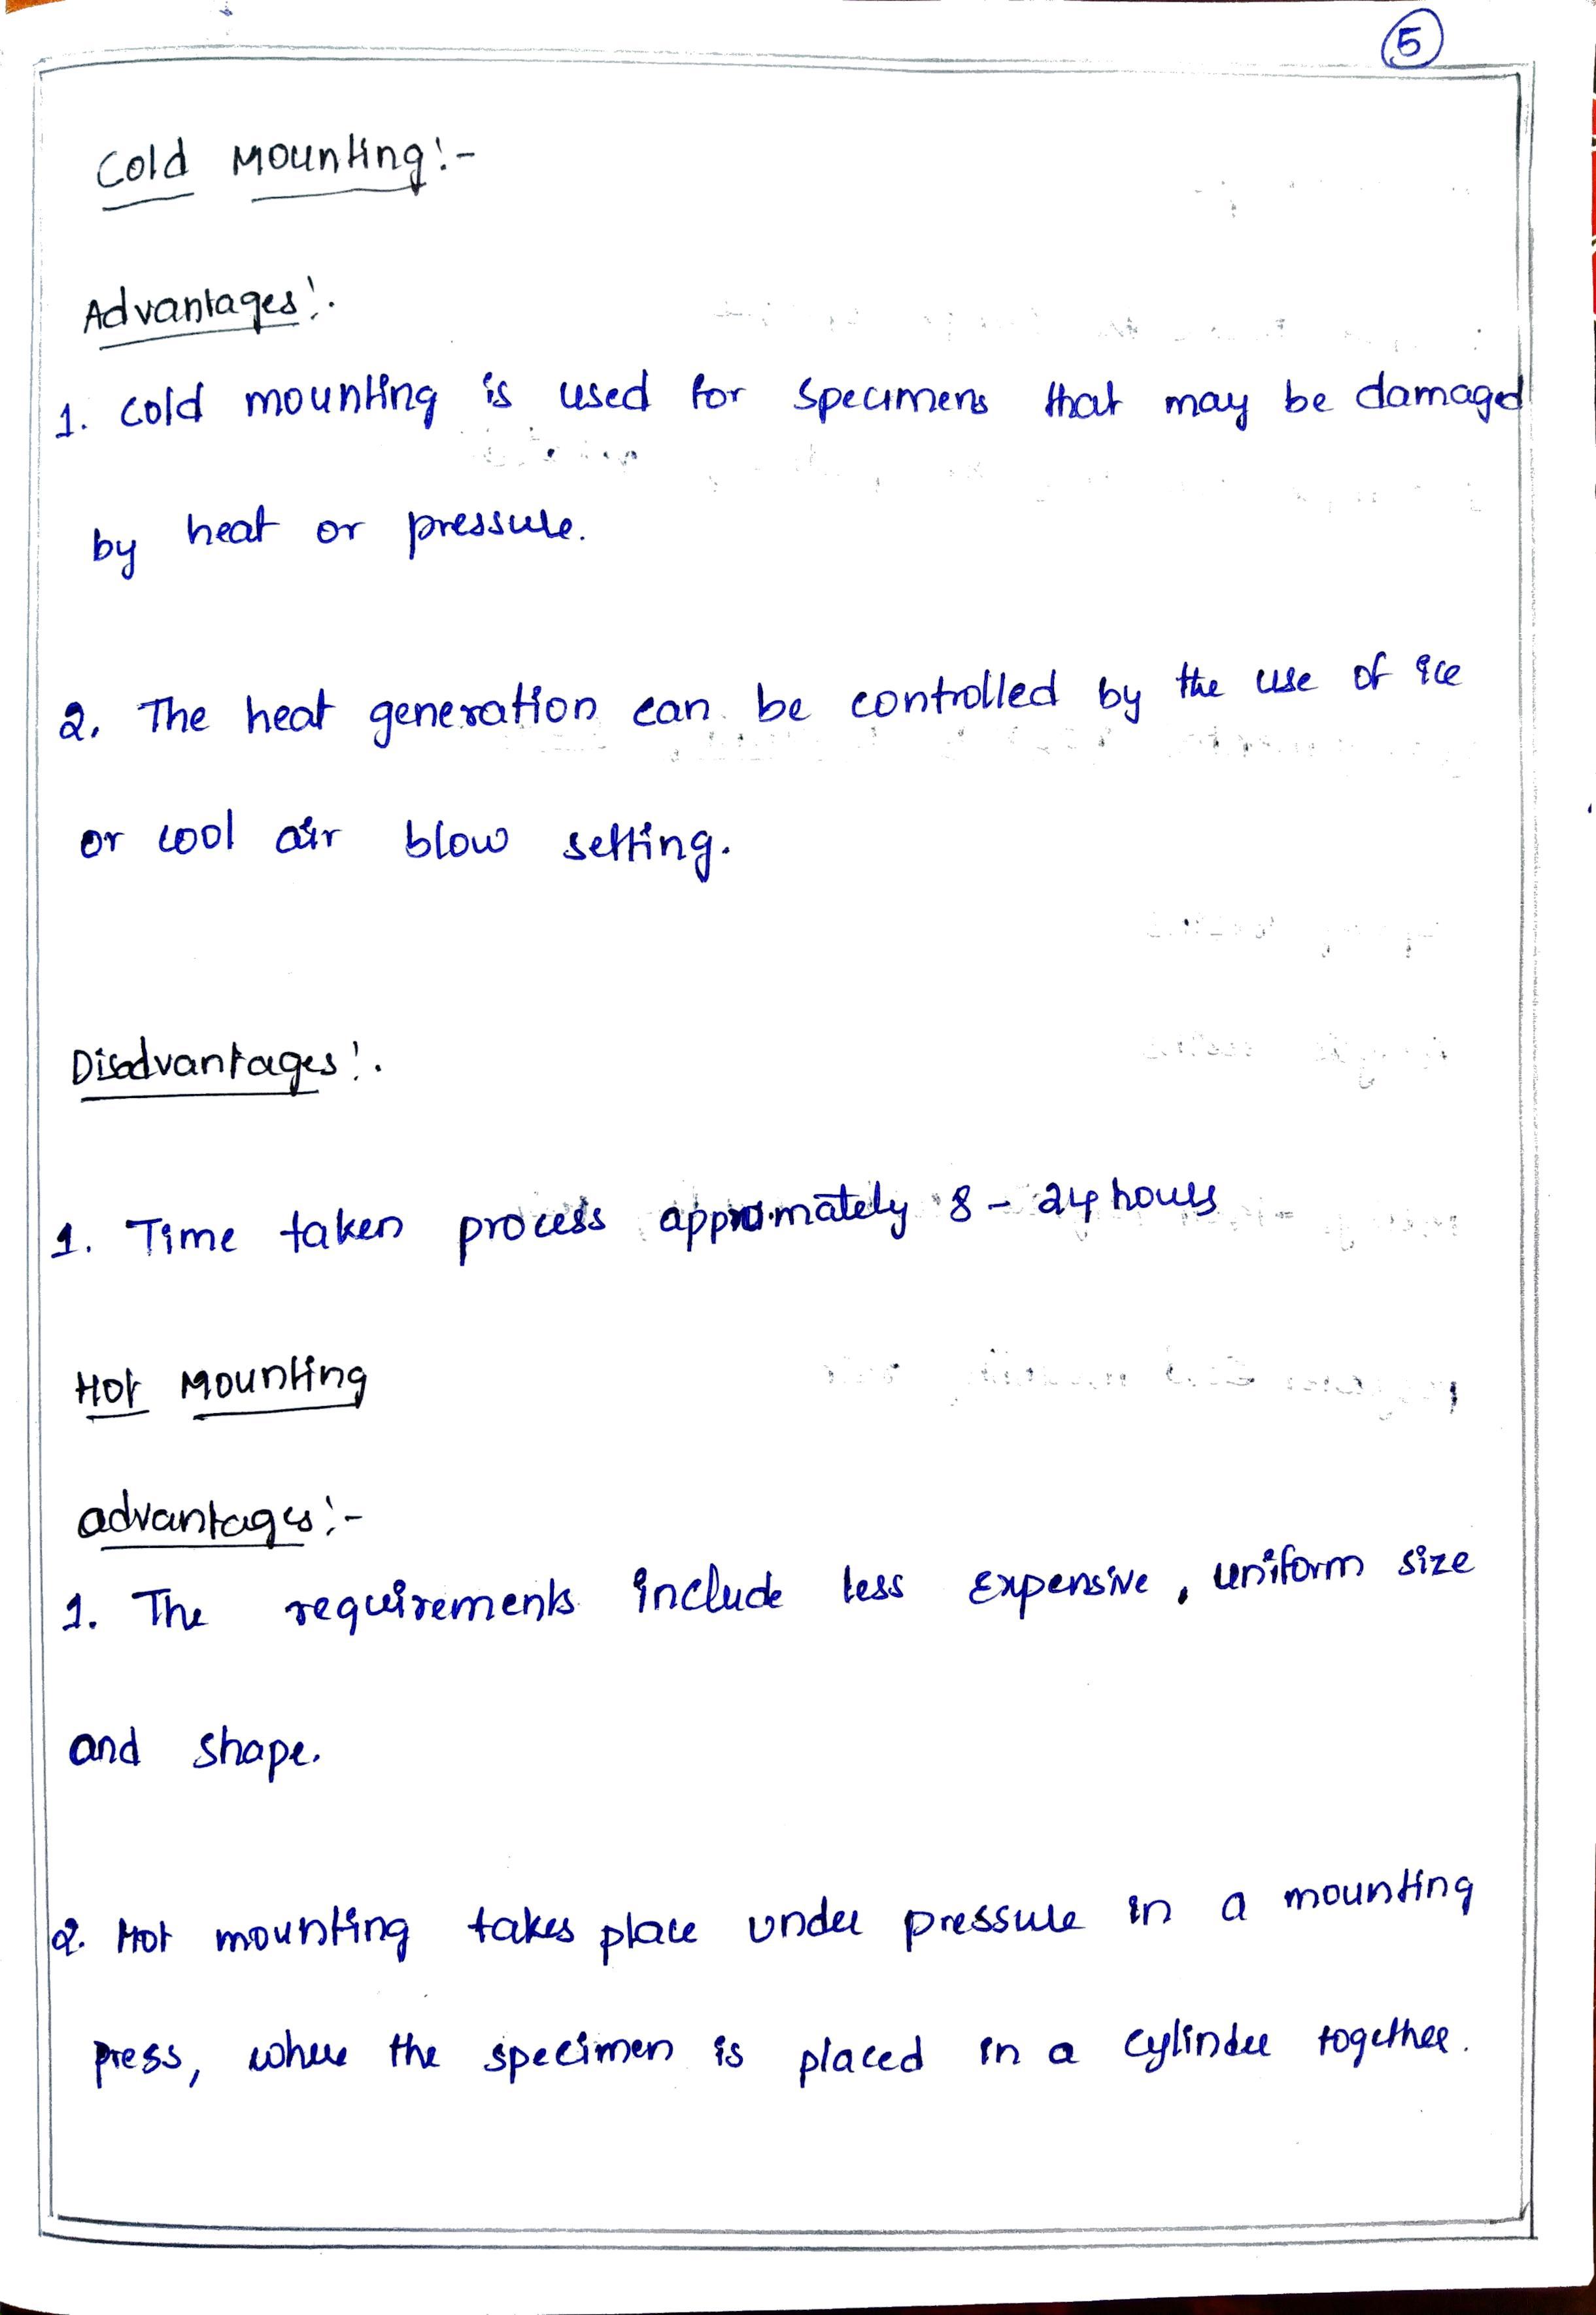 5
Cold Mounting:-
Advantages:.
1. Cold mounting is used for specimens that may be damaged
by heat or pressure.
2. The heat generation can be controlled by the use of ice
or cool air blow setting.
Disadvantages:.
1. Time taken process appromately 8 - 24 hours
Hot Mounting
advantages:-
1. The requirements include less Expensive, uniform size
and shape.
2. Hot mounting takes place under pressure in a mounting
press, where the specimen is placed in a cylinder together.